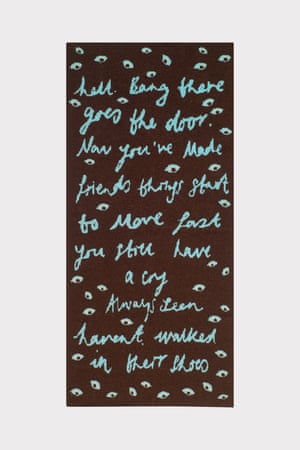 hell. Bang there
goes the door.
Now you've Made
friends things start
to Move fast
you still have
a cry
Always Seen
havent walked
in their shoes